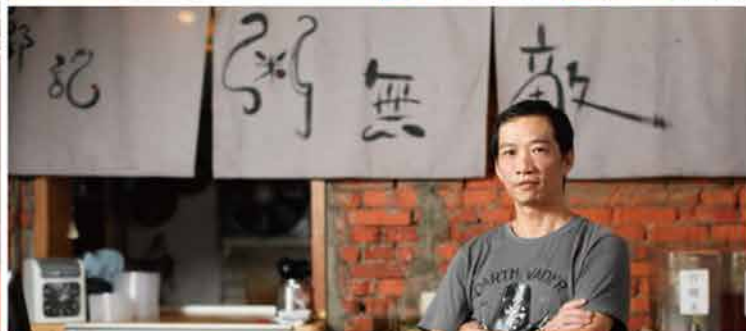 記 粥 無 敵
DARTH VADER